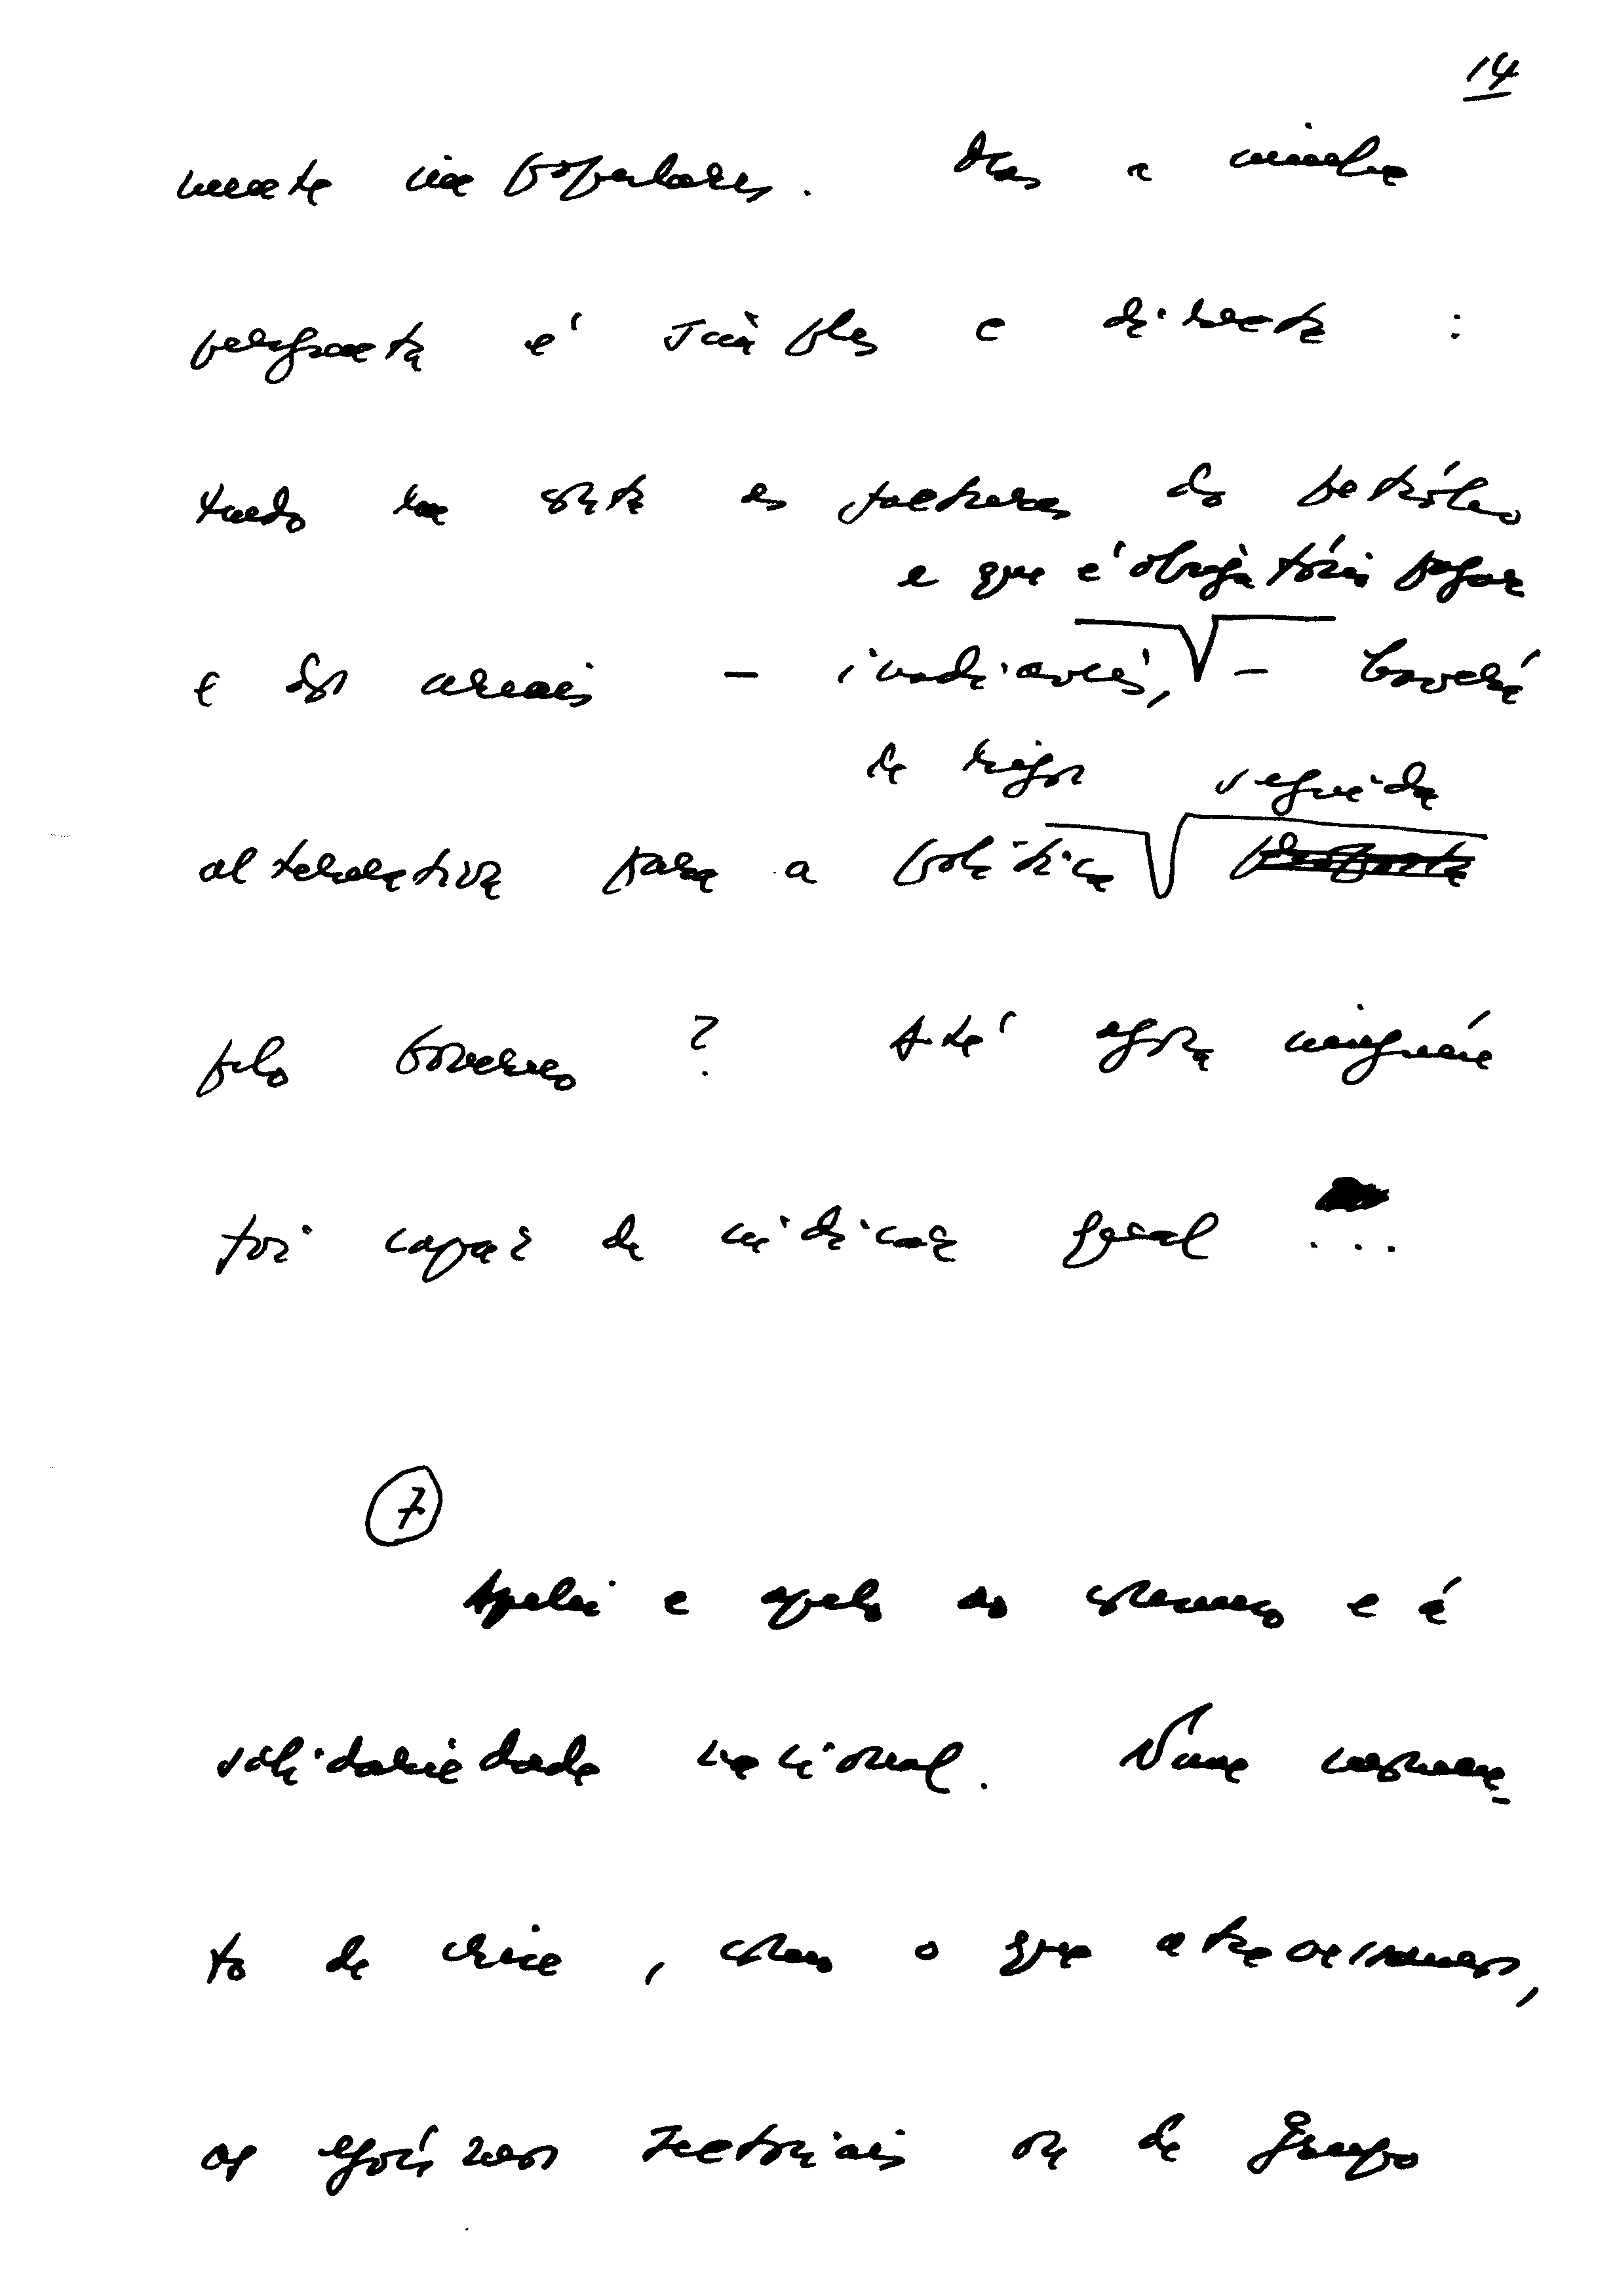 14
mente impopulares. Mas a minha
pergunta é simples e directa :
tendo em conta as facturas do petróleo
e que é obrigatório pagar
e dos cereais – inadiáveis, – haverá
de rigor seguida
alternativa para a política proposta
pelo Governo ? Até agora ninguém
foi capaz de indicar qual ...
7
Apelei e apelo ao consenso e à
solidariedade nacional. Num momen-
to de crise, como o que atravessamos,
os egoísmos sectoriais ou de grupo